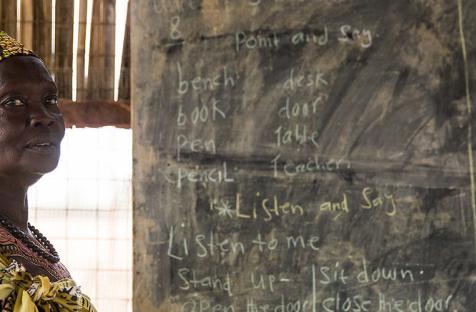 &
Point and Say.
bench desk
book door
pen Table
pencil Teacher.
*Listen and Say
Listen to me
Stand up- sit down.
Open the door close the door.